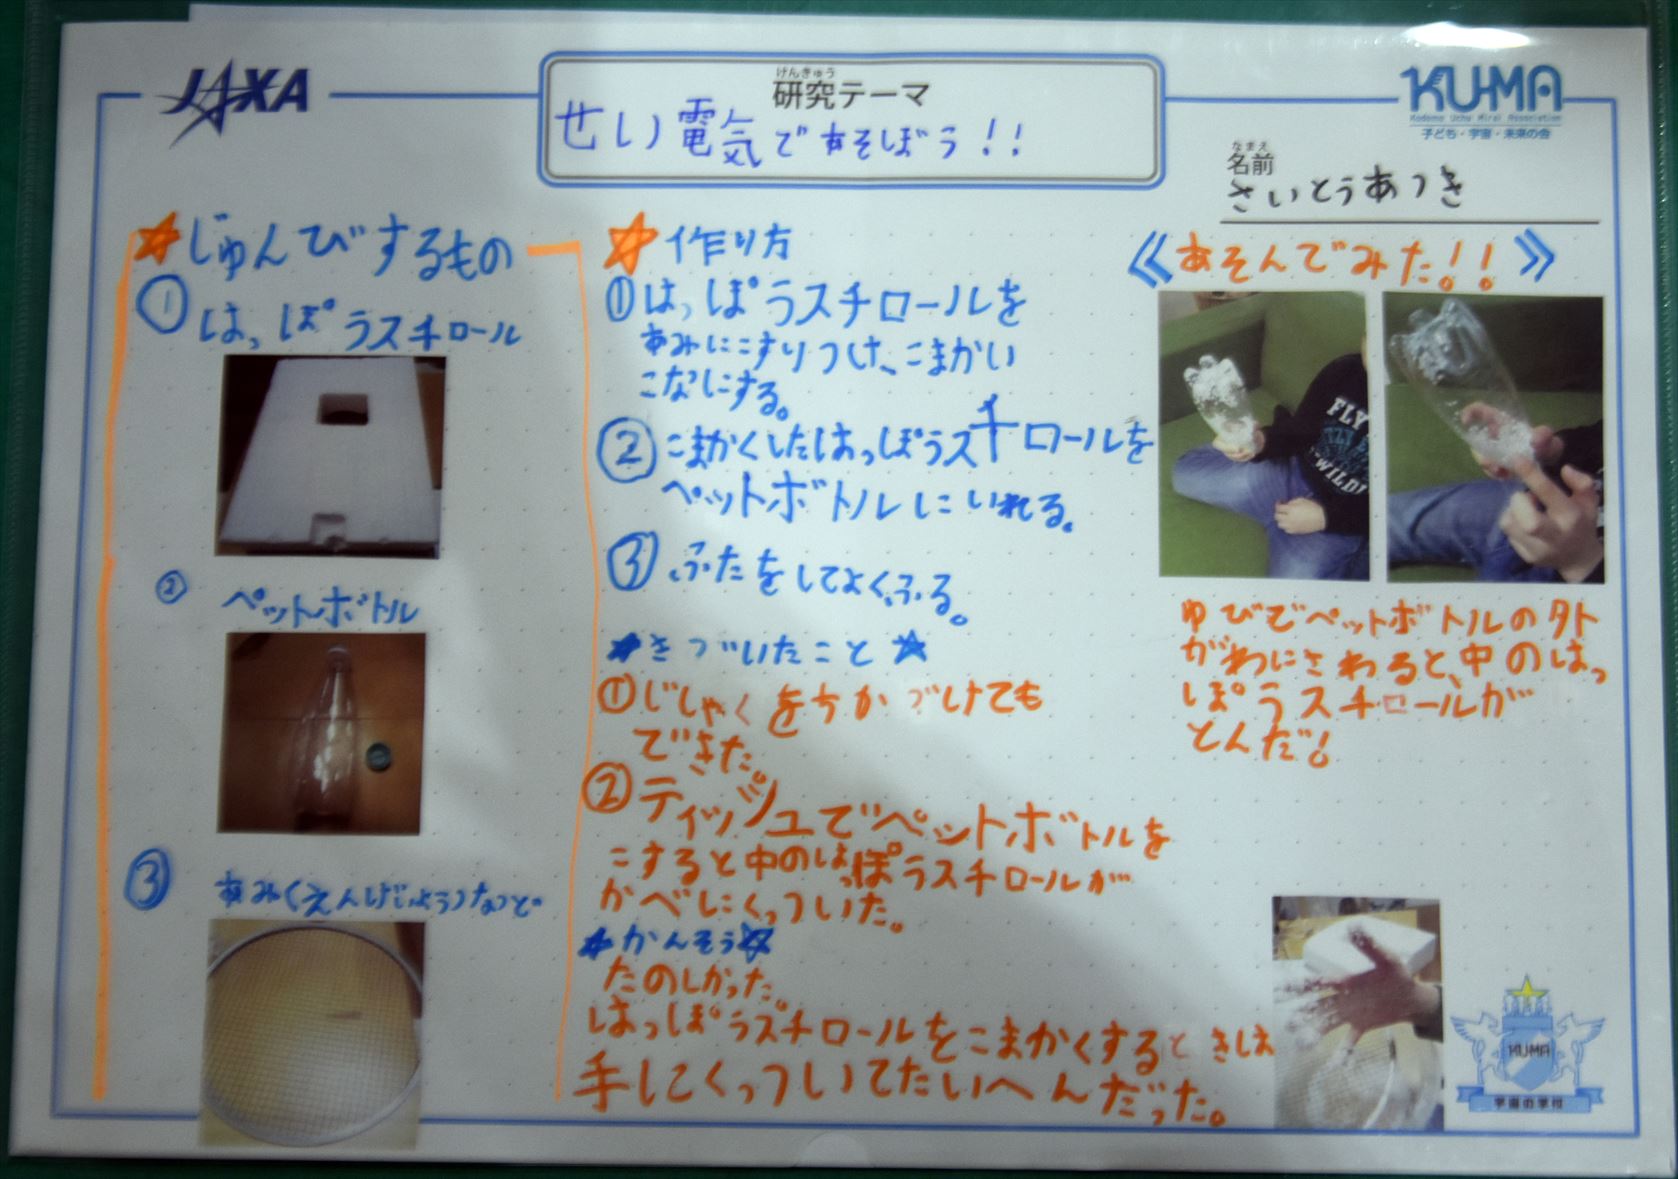 JAXA
けんきゅう
研究テーマ
せい電気であそぼう!!
KU-MA
Kodomo Uchu Mirai Association
子ども・宇宙・未来の会
なまえ
名前
さいとうあつき
じゅんびするもの
① はっぽうスチロール
② ペットボトル
③ あみ(えんげいようなど
作り方
①はっぽうスチロールを
あみにこすりつけ、こまかい
こなにする。
②こまかくしたはっぽうスチロールを
ペットボトルにいれる。
③ふたをしてよくふる。
きづいたこと
①じしゃくをちかづけても
できた。
②ティッシュでペットボトルを
こすると中のはっぽうスチロールが
かべにくっついた。
かんそう
たのしかった。
はっぽうスチロールをこまかくするときは
手にくっついてたいへんだった。
《あそんでみた!!》
FLY
WILD!
ゆびでペットボトルの外
がわにさわると、中のはっ
ぽうスチロールが
とんだ!
KUMA
宇宙の学校